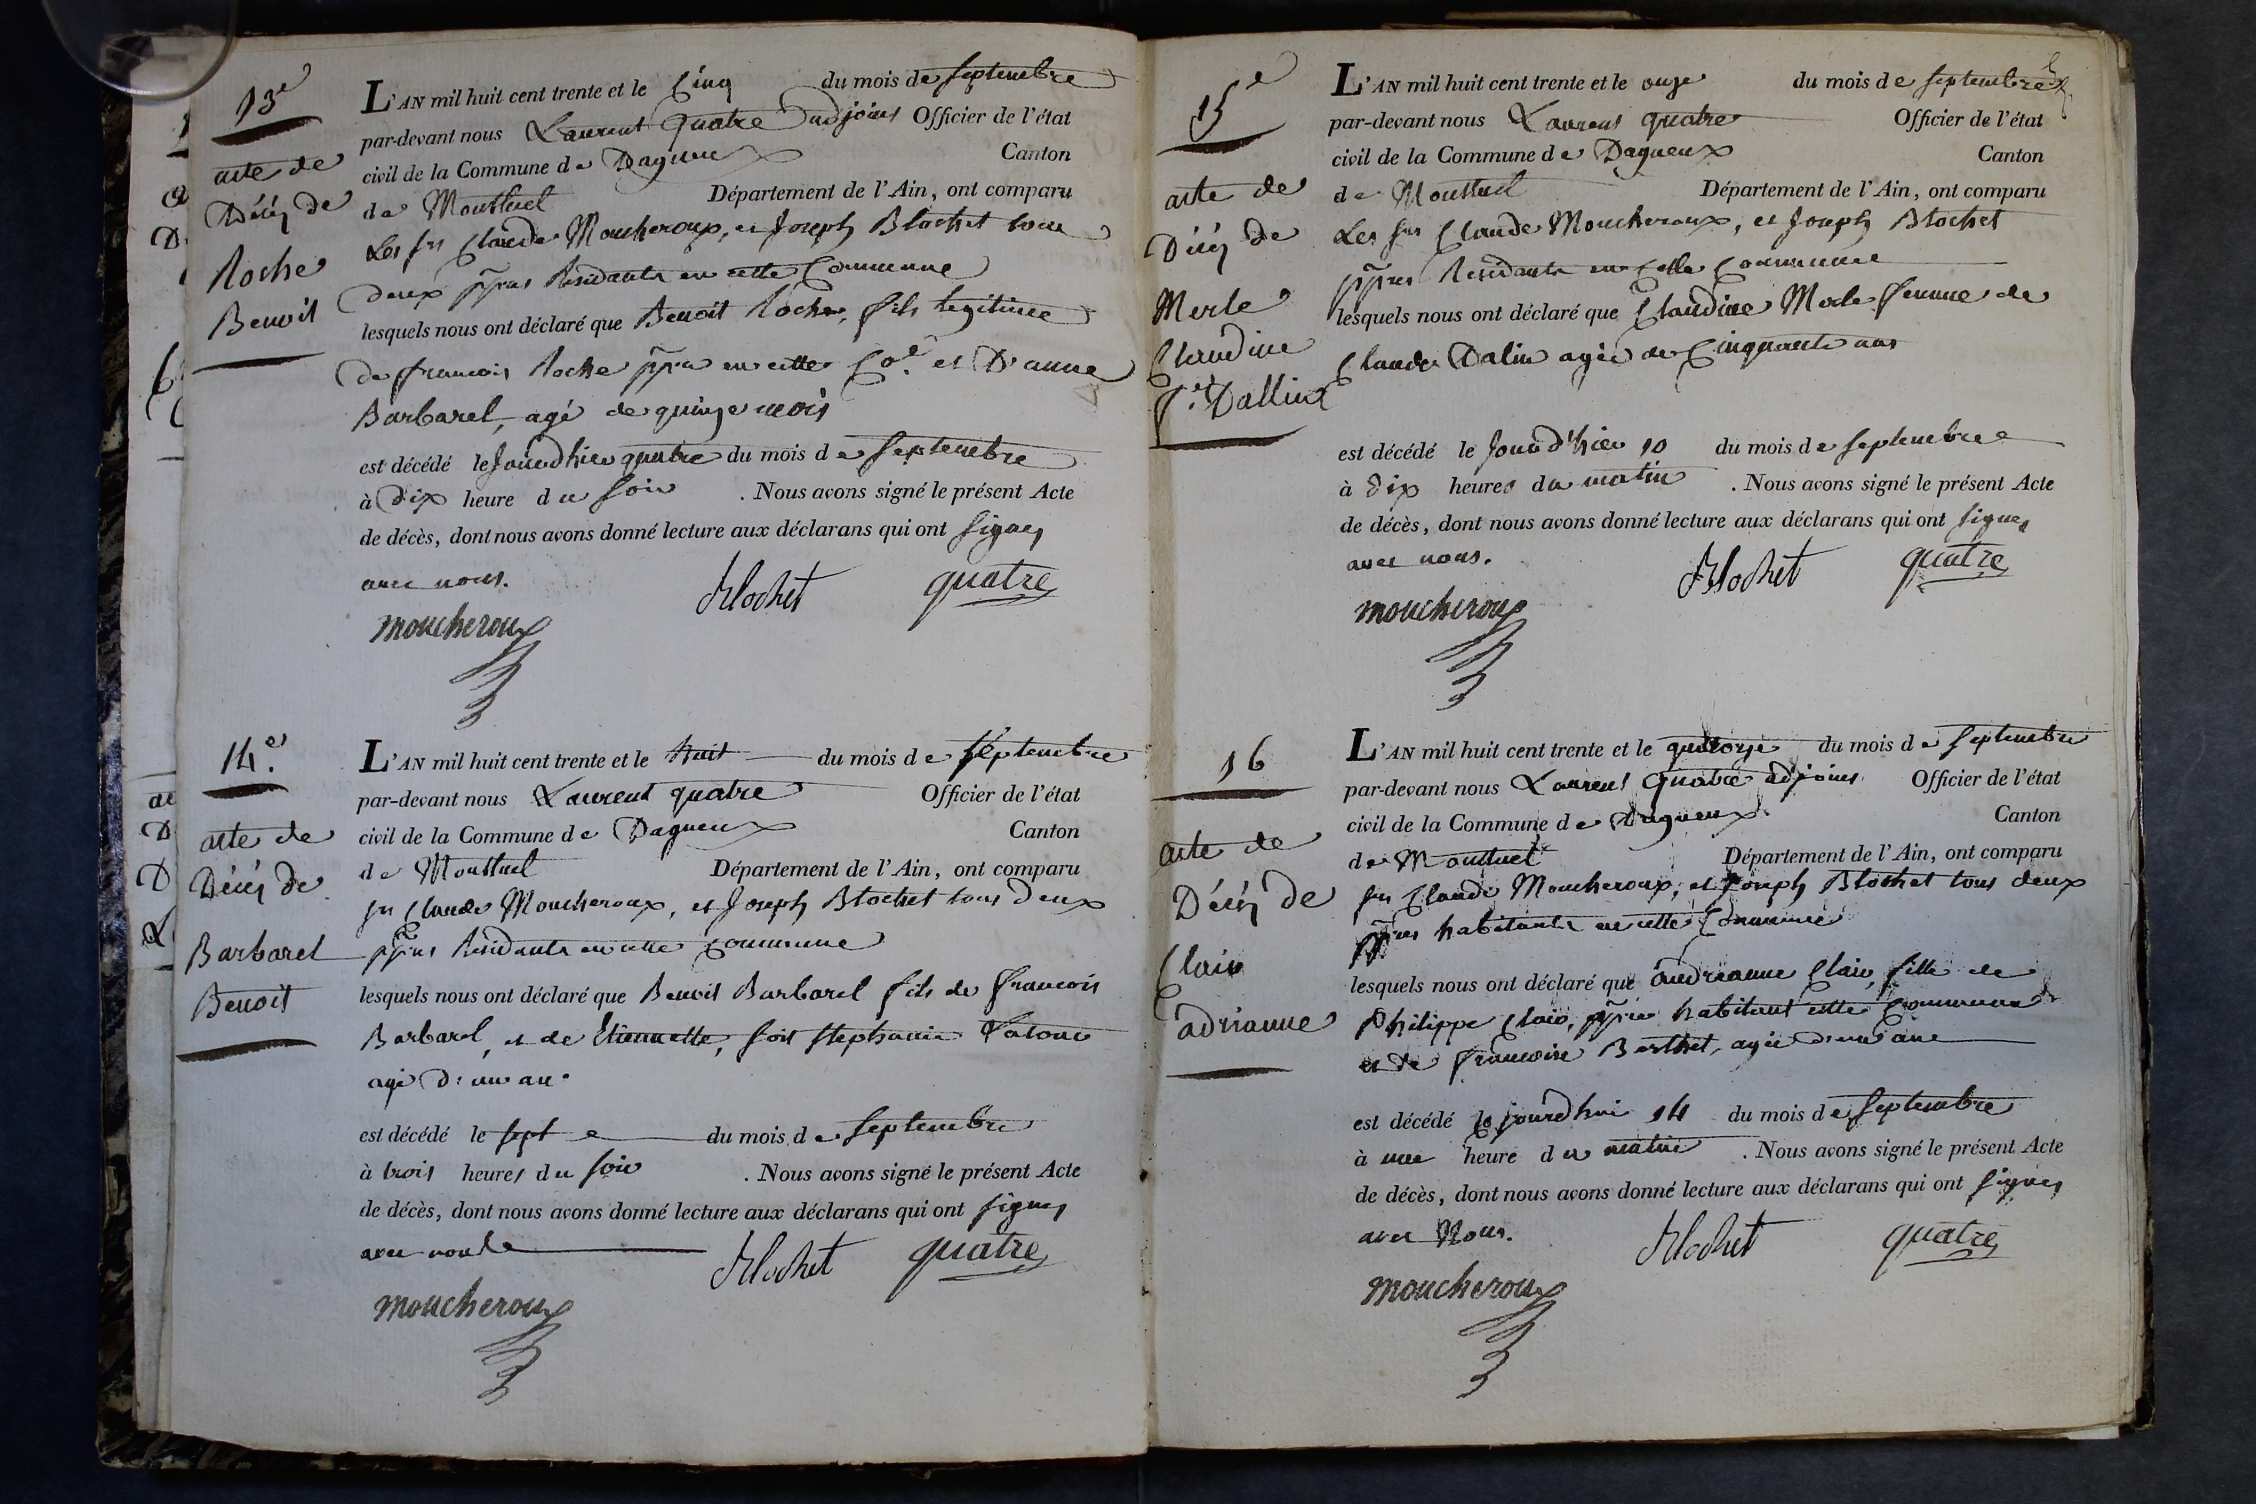 13e
acte de
Décès de
Roche
Benoit
L'AN mil huit cent trente et le Cinq du mois de septembre
par-devant nous Laurent quatre adjoint Officier de l'état
civil de la Commune de Dagneux Canton
de Montluel Département de l'Ain, ont comparu
Les srs Claude Moucheroux, et Joseph Blochet tous
deux ppres Residants en cette Commune
lesquels nous ont déclaré que Benoit Roche, fils legitime
de francois Roche ppre en cette Coe. et D'anne
Barbarel, agé de quinze mois
est décédé le Jourd'hier quatre du mois de septembre
à Dix heure du soir . Nous avons signé le présent Acte
de décès, dont nous avons donné lecture aux déclarans qui ont signés
avec nous.
Blochet quatre
moucheroux
14e.
acte de
Décès de
Barbarel
Benoit
L'AN mil huit cent trente et le huit du mois de septembre
par-devant nous Laurent quatre Officier de l'état
civil de la Commune de Dagneux Canton
de Montluel Département de l'Ain, ont comparu
srs Claude Moucheroux, et Joseph Blochet tous Deux
ppres Residants en cette Commune
lesquels nous ont déclaré que Benoit Barbarel fils de francois
Barbarel, et de Etiennette, soit stephanie
agé D'un an.
est décédé le sept du mois de septembre
à trois heures du soir . Nous avons signé le présent Acte
de décès, dont nous avons donné lecture aux déclarans qui ont signés
avec nous
Blochet quatre
moucheroux
15e
acte de
Décès de
Merle
Claudine
fe. Dallin
L'AN mil huit cent trente et le onze du mois de septembre
par-devant nous Laurent quatre Officier de l'état
civil de la Commune de Dagneux Canton
de Montluel Département de l'Ain, ont comparu
Les srs Claude Moucheroux, et Joseph Blochet
ppres Residants en cette Commune
lesquels nous ont déclaré que Claudine Merle femme de
Claude Dalin agée de Cinquante ans
est décédé le Jourd'hier 10 du mois de septembre
à Dix heures du matin . Nous avons signé le présent Acte
de décès, dont nous avons donné lecture aux déclarans qui ont signés
avec nous.
Blochet quatre
moucheroux
16
acte de
Décès de
Clair
adrianne
L'AN mil huit cent trente et le quatorze du mois de septembre
par-devant nous Laurent Quatre adjoint Officier de l'état
civil de la Commune de Dagneux Canton
de Montluel Département de l'Ain, ont comparu
srs Claude Moucheroux, et Joseph Blochet tous deux
ppres habitants en cette Commune
lesquels nous ont déclaré que andrianne Clair, fille de
Philippe Clair, ppre habitant cette Commune
et de francoise Berthet, agée d'un an
est décédé le jourdhui 14 du mois de septembre
à une heure du matin . Nous avons signé le présent Acte
de décès, dont nous avons donné lecture aux déclarans qui ont signés
avec Nous.
Blochet quatre
moucheroux